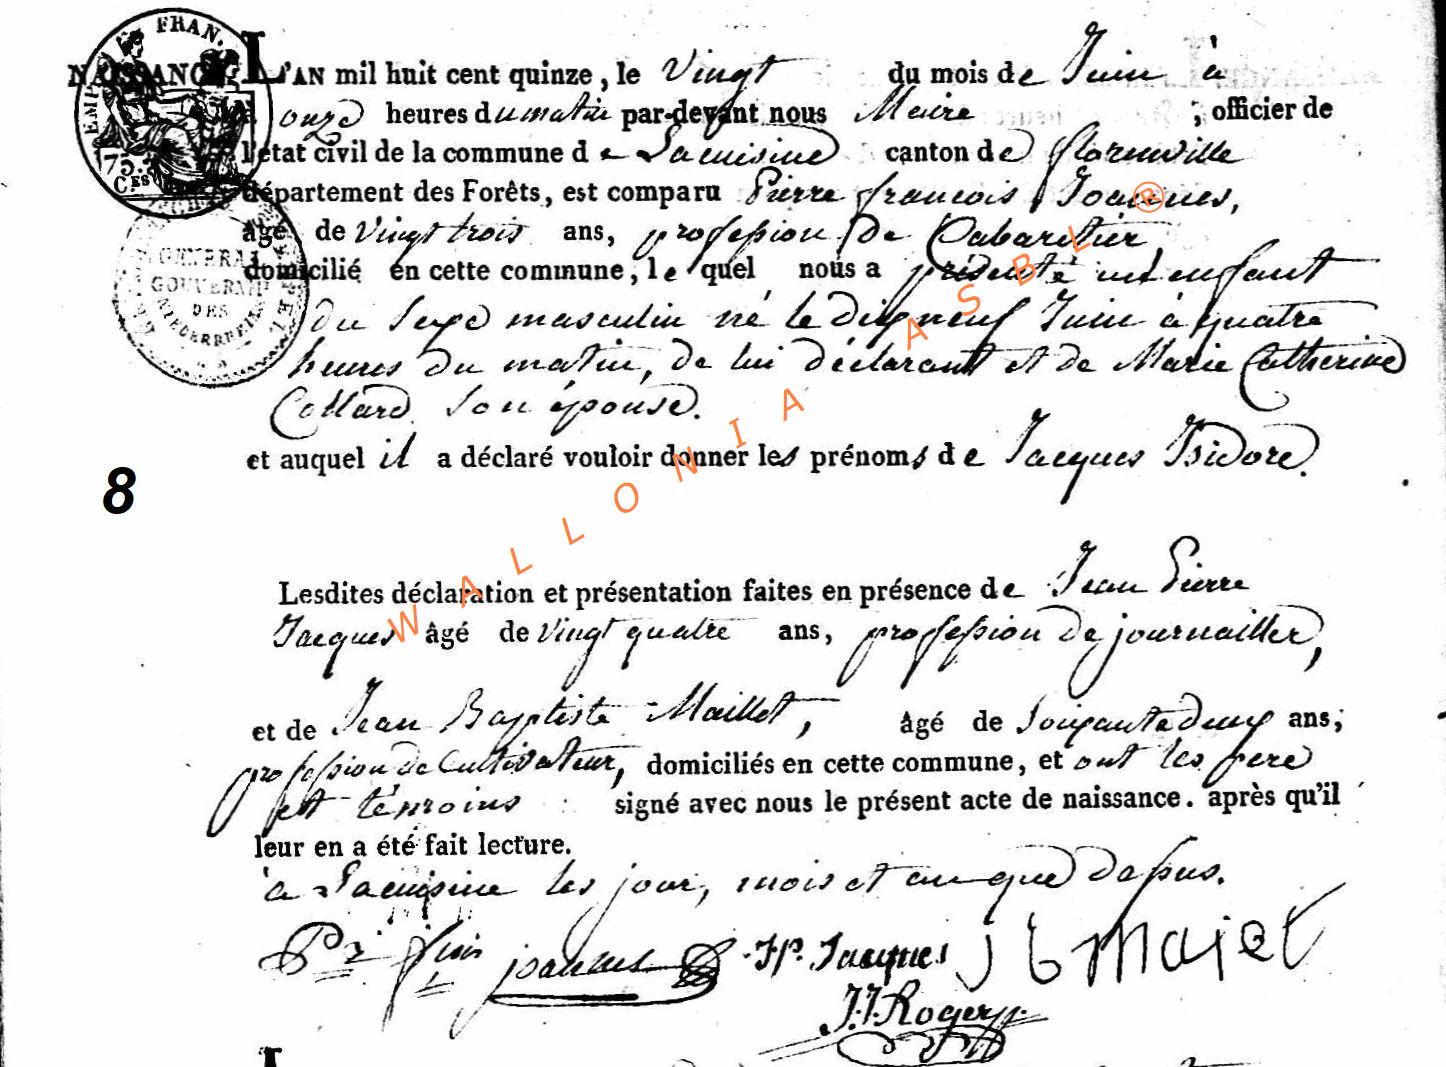 EMP. FRAN.
75.
C.ES
NAISSANCE.
L'AN mil huit cent quinze, le Vingt du mois de Juin à
onze heures du matin par-devant nous Maire ; officier de
l'état civil de la commune de Lacuisine canton de florenville
département des Forêts, est comparu Pierre francois Joannes,
âgé de Vingt trois ans, profession de Cabaretier,
domicilié en cette commune, lequel nous a présenté un enfant
du Sexe masculin né le dix neuf Juin à quatre
heures du matin, de lui déclarant et de Marie Catherine
Collard son épouse.
et auquel il a déclaré vouloir donner les prénoms de Jacques Isidore.
8
Lesdites déclaration et présentation faites en présence de Jean Pierre
Jacques âgé de Vingt quatre ans, profession de journallier,
et de Jean Baptiste Maillet, âgé de Soixante deux ans,
profession de Cultivateur, domiciliés en cette commune, et ont les pere
et témoins signé avec nous le présent acte de naissance. après qu'il
leur en a été fait lecture.
à Lacuisine les jour, mois et an que dessus.
JP. Jacques J b Majet
J.J. Roger
GENERAL
GOUVERNEM
DES
NIEDERRHEIN
WALLONIA ASBL ®